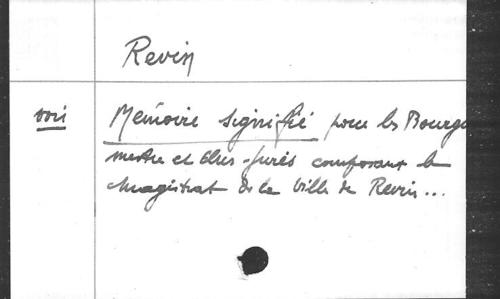 Revin
voir Mémoire signifié pour les Bourge
mestre et Elus-Jurés composant le
Magistrat de la Ville de Revin...